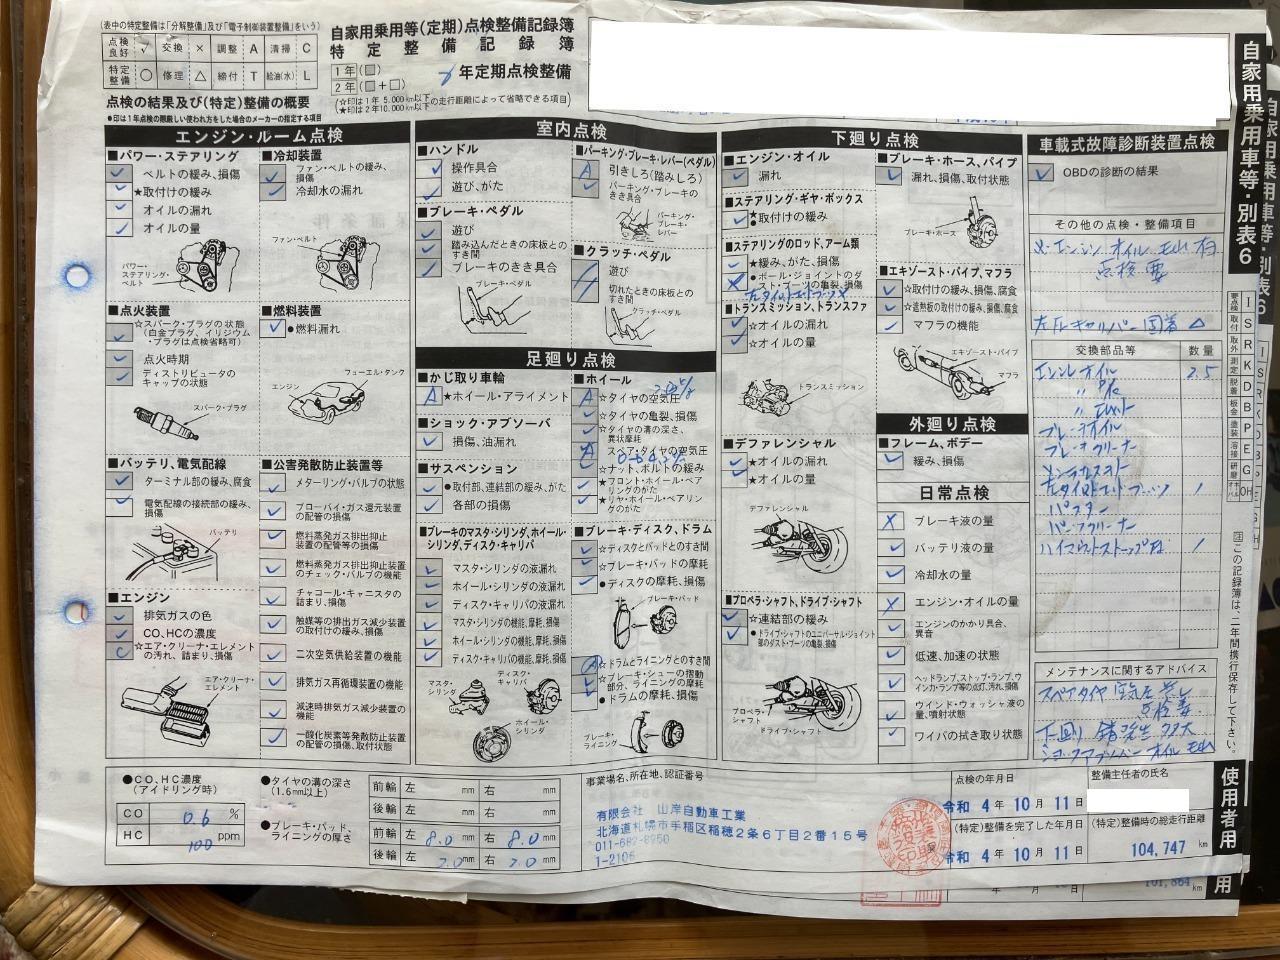 (表中の特定整備は「分解整備」及び「電子制御装置整備」をいう)
点検良好 ✓ 交換 × 調整 A 清掃 C
特定整備 ○ 修理 △ 締付 T 給油(水) L
点検の結果及び(特定)整備の概要
●印は1年点検の際厳しい使われ方をした場合のメーカーの指定する項目
自家用乗用等(定期)点検整備記録簿
特定整備記録簿
1年(□)
2年(□+□)
年定期点検整備
(☆印は1年 5,000km以下
★印は2年10,000km以下の走行距離によって省略できる項目)
自家用乗用車等・別表6
エンジン・ルーム点検
■パワー・ステアリング
ベルトの緩み、損傷
★取付けの緩み
オイルの漏れ
オイルの量
パワー・ステアリング・ベルト
■冷却装置
ファン・ベルトの緩み、損傷
冷却水の漏れ
ファン・ベルト
■点火装置
☆スパーク・プラグの状態
(白金プラグ、イリジウム・プラグは点検省略可)
点火時期
ディストリビュータのキャップの状態
スパーク・プラグ
■燃料装置
●燃料漏れ
フューエル・タンク
エンジン
■バッテリ、電気配線
ターミナル部の緩み、腐食
電気配線の接続部の緩み、損傷
バッテリ
■公害発散防止装置等
メターリング・バルブの状態
ブローバイ・ガス還元装置の配管の損傷
燃料蒸発ガス排出抑止装置の配管等の損傷
燃料蒸発ガス排出抑止装置のチェック・バルブの機能
チャコール・キャニスタの詰まり、損傷
触媒等の排出ガス減少装置の取付けの緩み、損傷
二次空気供給装置の機能
排気ガス再循環装置の機能
減速時排気ガス減少装置の機能
一酸化炭素等発散防止装置の配管の損傷、取付状態
■エンジン
排気ガスの色
CO、HCの濃度
☆エア・クリーナ・エレメントの汚れ、詰まり、損傷
エア・クリーナ・エレメント
室内点検
■ハンドル
操作具合
遊び、がた
■ブレーキ・ペダル
遊び
踏み込んだときの床板とのすき間
ブレーキのきき具合
ブレーキ・ペダル
■パーキング・ブレーキ・レバー(ペダル)
引きしろ(踏みしろ)
パーキング・ブレーキのきき具合
パーキング・ブレーキ・レバー
■クラッチ・ペダル
遊び
切れたときの床板とのすき間
クラッチ・ペダル
足廻り点検
■かじ取り車輪
★ホイール・アライメント
■ショック・アブソーバ
損傷、油漏れ
■サスペンション
●取付部、連結部の緩み、がた
各部の損傷
■ブレーキのマスタ・シリンダ、ホイール・シリンダ、ディスク・キャリパ
マスタ・シリンダの液漏れ
ホイール・シリンダの液漏れ
ディスク・キャリパの液漏れ
マスタ・シリンダの機能、摩耗、損傷
ホイール・シリンダの機能、摩耗、損傷
ディスク・キャリパの機能、摩耗、損傷
マスタ・シリンダ
ディスク・キャリパ
ホイール・シリンダ
■ホイール
☆タイヤの空気圧
☆タイヤの亀裂、損傷
☆タイヤの溝の深さ、異状摩耗
スペア・タイヤの空気圧
☆ナット、ボルトの緩み
★フロント・ホイール・ベアリングのがた
★リヤ・ホイール・ベアリングのがた
■ブレーキ・ディスク、ドラム
☆ディスクとパッドとのすき間
☆ブレーキ・パッドの摩耗
●ディスクの摩耗、損傷
ブレーキ・パッド
☆ドラムとライニングとのすき間
☆ブレーキ・シューの摺動部分、ライニングの摩耗
●ドラムの摩耗、損傷
ブレーキ・ライニング
下廻り点検
■エンジン・オイル
漏れ
■ステアリング・ギヤ・ボックス
★取付けの緩み
■ステアリングのロッド、アーム類
★緩み、がた、損傷
●ボール・ジョイントのダスト・ブーツの亀裂、損傷
左タイロットエンドブーツ×
■トランスミッション、トランスファ
☆オイルの漏れ
☆オイルの量
トランスミッション
■デファレンシャル
★オイルの漏れ
★オイルの量
デファレンシャル
■プロペラ・シャフト、ドライブ・シャフト
☆連結部の緩み
●ドライブ・シャフトのユニバーサル・ジョイント部のダスト・ブーツの亀裂、損傷
プロペラ・シャフト
ドライブ・シャフト
■ブレーキ・ホース、パイプ
漏れ、損傷、取付状態
ブレーキ・ホース
■エキゾースト・パイプ、マフラ
☆取付けの緩み、損傷、腐食
☆遮熱板の取付けの緩み、損傷、腐食
マフラの機能
エキゾースト・パイプ
マフラ
外廻り点検
■フレーム、ボデー
緩み、損傷
日常点検
ブレーキ液の量
バッテリ液の量
冷却水の量
エンジン・オイルの量
エンジンのかかり具合、異音
低速、加速の状態
ヘッドランプ、ストップ・ランプ、ウインカ・ランプ等の点灯、汚れ、損傷
ウインド・ウォッシャ液の量、噴射状態
ワイパの拭き取り状態
車載式故障診断装置点検
OBDの診断の結果
その他の点検・整備項目
エンジン オイル モレ 有
点検要
左Fキャリパー固着 △
交換部品等 数量
エンジンオイル 2.5
〃 P/K
〃 エレメント
ブレーキオイル
ブレーキクリーナー
左タイロットエンドブーツ 1
パスター
パーツクリーナー
ハイマウントストップ球 1
メンテナンスに関するアドバイス
スペアタイヤ 空気圧 無し
点検要
下回り 錆発生 多大
ショックアブソーバー オイルモレ
●CO、HC濃度
(アイドリング時)
CO 0.6 %
HC 100 ppm
●タイヤの溝の深さ
(1.6mm以上)
前輪 左 mm 右 mm
後輪 左 mm 右 mm
●ブレーキ・パッド、ライニングの厚さ
前輪 左 8.0 mm 右 8.0 mm
後輪 左 2.0 mm 右 2.0 mm
事業場名、所在地、認証番号
有限会社 山岸自動車工業
北海道札幌市手稲区稲穂2条6丁目2番15号
011-682-8950
1-2106
点検の年月日
令和 4年 10月 11日
(特定)整備を完了した年月日
令和 4年 10月 11日
整備主任者の氏名
(特定)整備時の総走行距離
104,747 km
101,864 km
要点検 I
取付 S
取外 R
測定 K
脱着 D
板金 B
塗装 P
溶接 E
研磨 G
オーバーホール OH
注この記録簿は、二年間携行保存して下さい。
使用者用